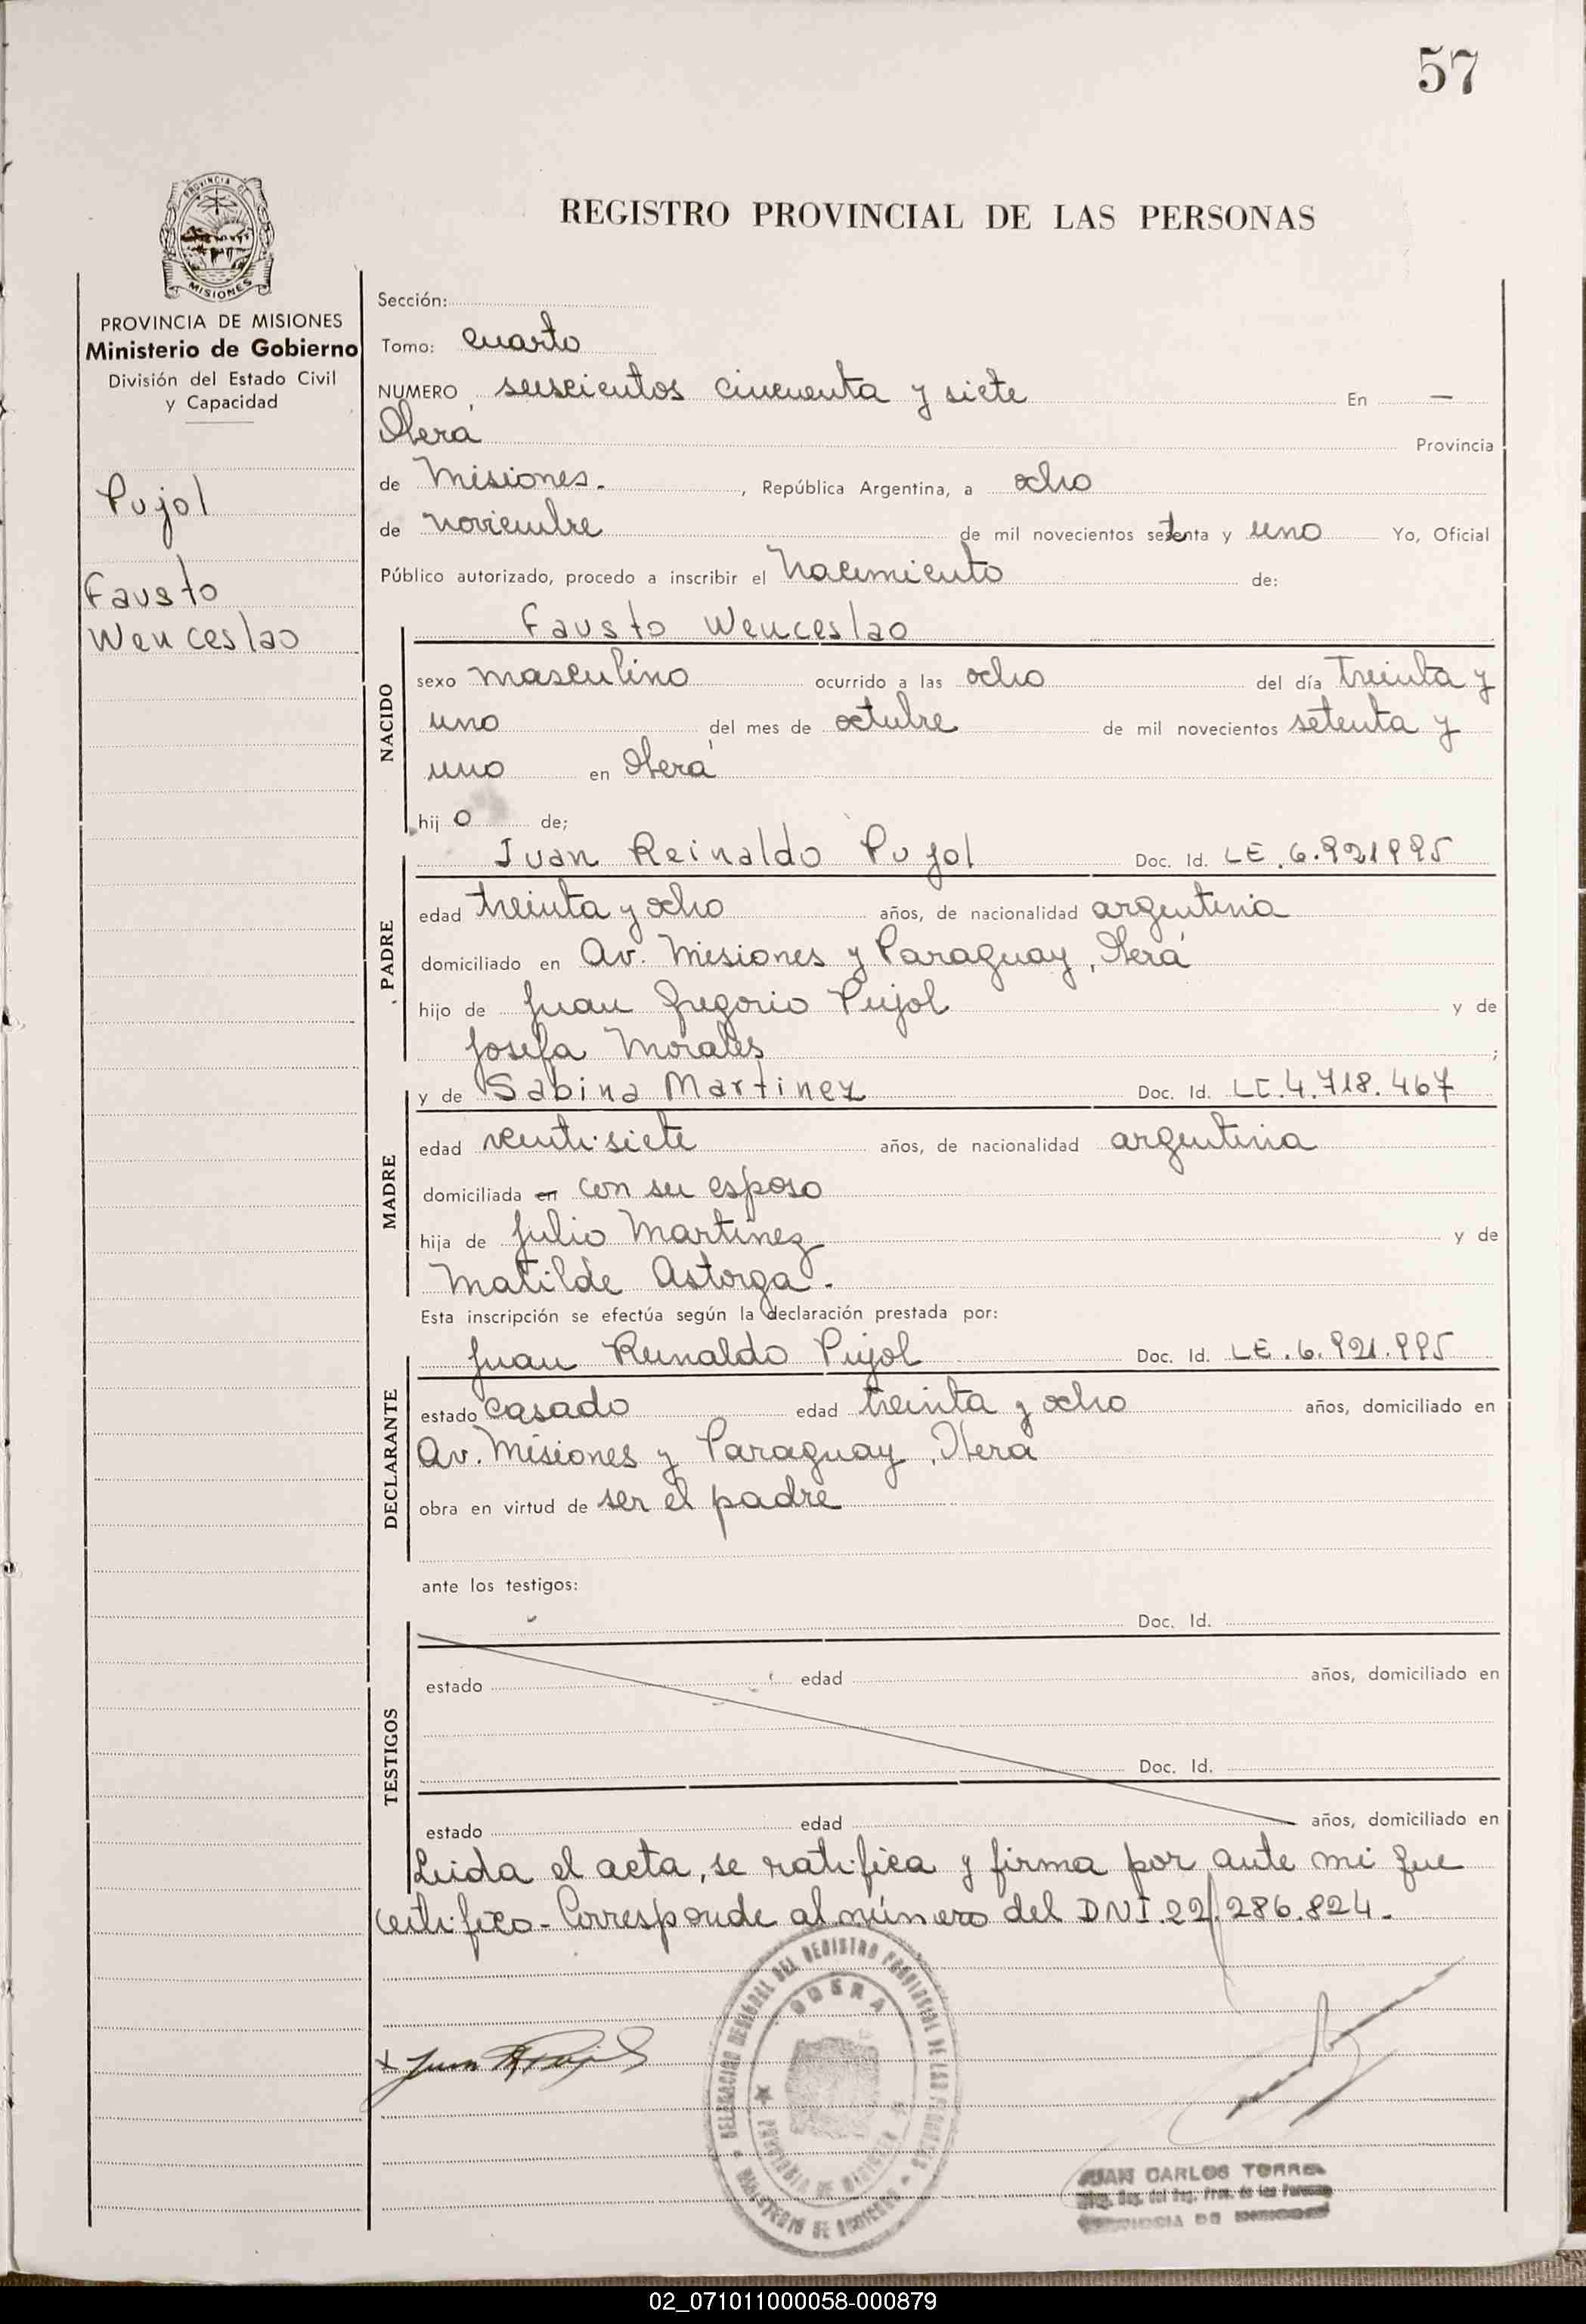 57
REGISTRO PROVINCIAL DE LAS PERSONAS
PROVINCIA DE
MISIONES
PROVINCIA DE MISIONES
Ministerio de Gobierno
División del Estado Civil
y Capacidad
Pujol
Fausto
Wenceslao
Sección:
Tomo: cuarto
NUMERO seiscientos cincuenta y siete En —
Oberá Provincia
de Misiones. , República Argentina, a ocho
de noviembre de mil novecientos setenta y uno Yo, Oficial
Público autorizado, procedo a inscribir el nacimiento de:
NACIDO
Fausto Wenceslao
sexo masculino ocurrido a las ocho del día treinta y
uno del mes de octubre de mil novecientos setenta y
uno en Oberá
hijo de;
PADRE
Juan Reinaldo Pujol Doc. Id. LE. 6.921995
edad treinta y ocho años, de nacionalidad argentina
domiciliado en Av. Misiones y Paraguay, Oberá
hijo de Juan Gregorio Pujol y de
Josefa Morales ;
MADRE
y de Sabina Martinez Doc. Id. LC. 4.718.467
edad veintisiete años, de nacionalidad argentina
domiciliada en con su esposo
hija de Julio Martinez y de
Matilde Astorga.
Esta inscripción se efectúa según la declaración prestada por:
DECLARANTE
Juan Reinaldo Pujol Doc. Id. LE. 6.921.995
estado casado edad treinta y ocho años, domiciliado en
Av. Misiones y Paraguay, Oberá
obra en virtud de ser el padre
ante los testigos:
TESTIGOS
Doc. Id.
estado edad años, domiciliado en
Doc. Id.
estado edad años, domiciliado en
Leida el acta, se ratifica y firma por ante mi que
certifico - Corresponde al número del DNI. 22.286.824.
DELEGACION REGIONAL DEL REGISTRO PROVINCIAL DE LAS PERSONAS
OBERA
PROVINCIA DE MISIONES
MINISTERIO DE GOBIERNO
x Juan R Pujol
JUAN CARLOS TORRE
Deg. del Reg. Prov. de las Personas
PROVINCIA DE MISIONES
02_071011000058-000879